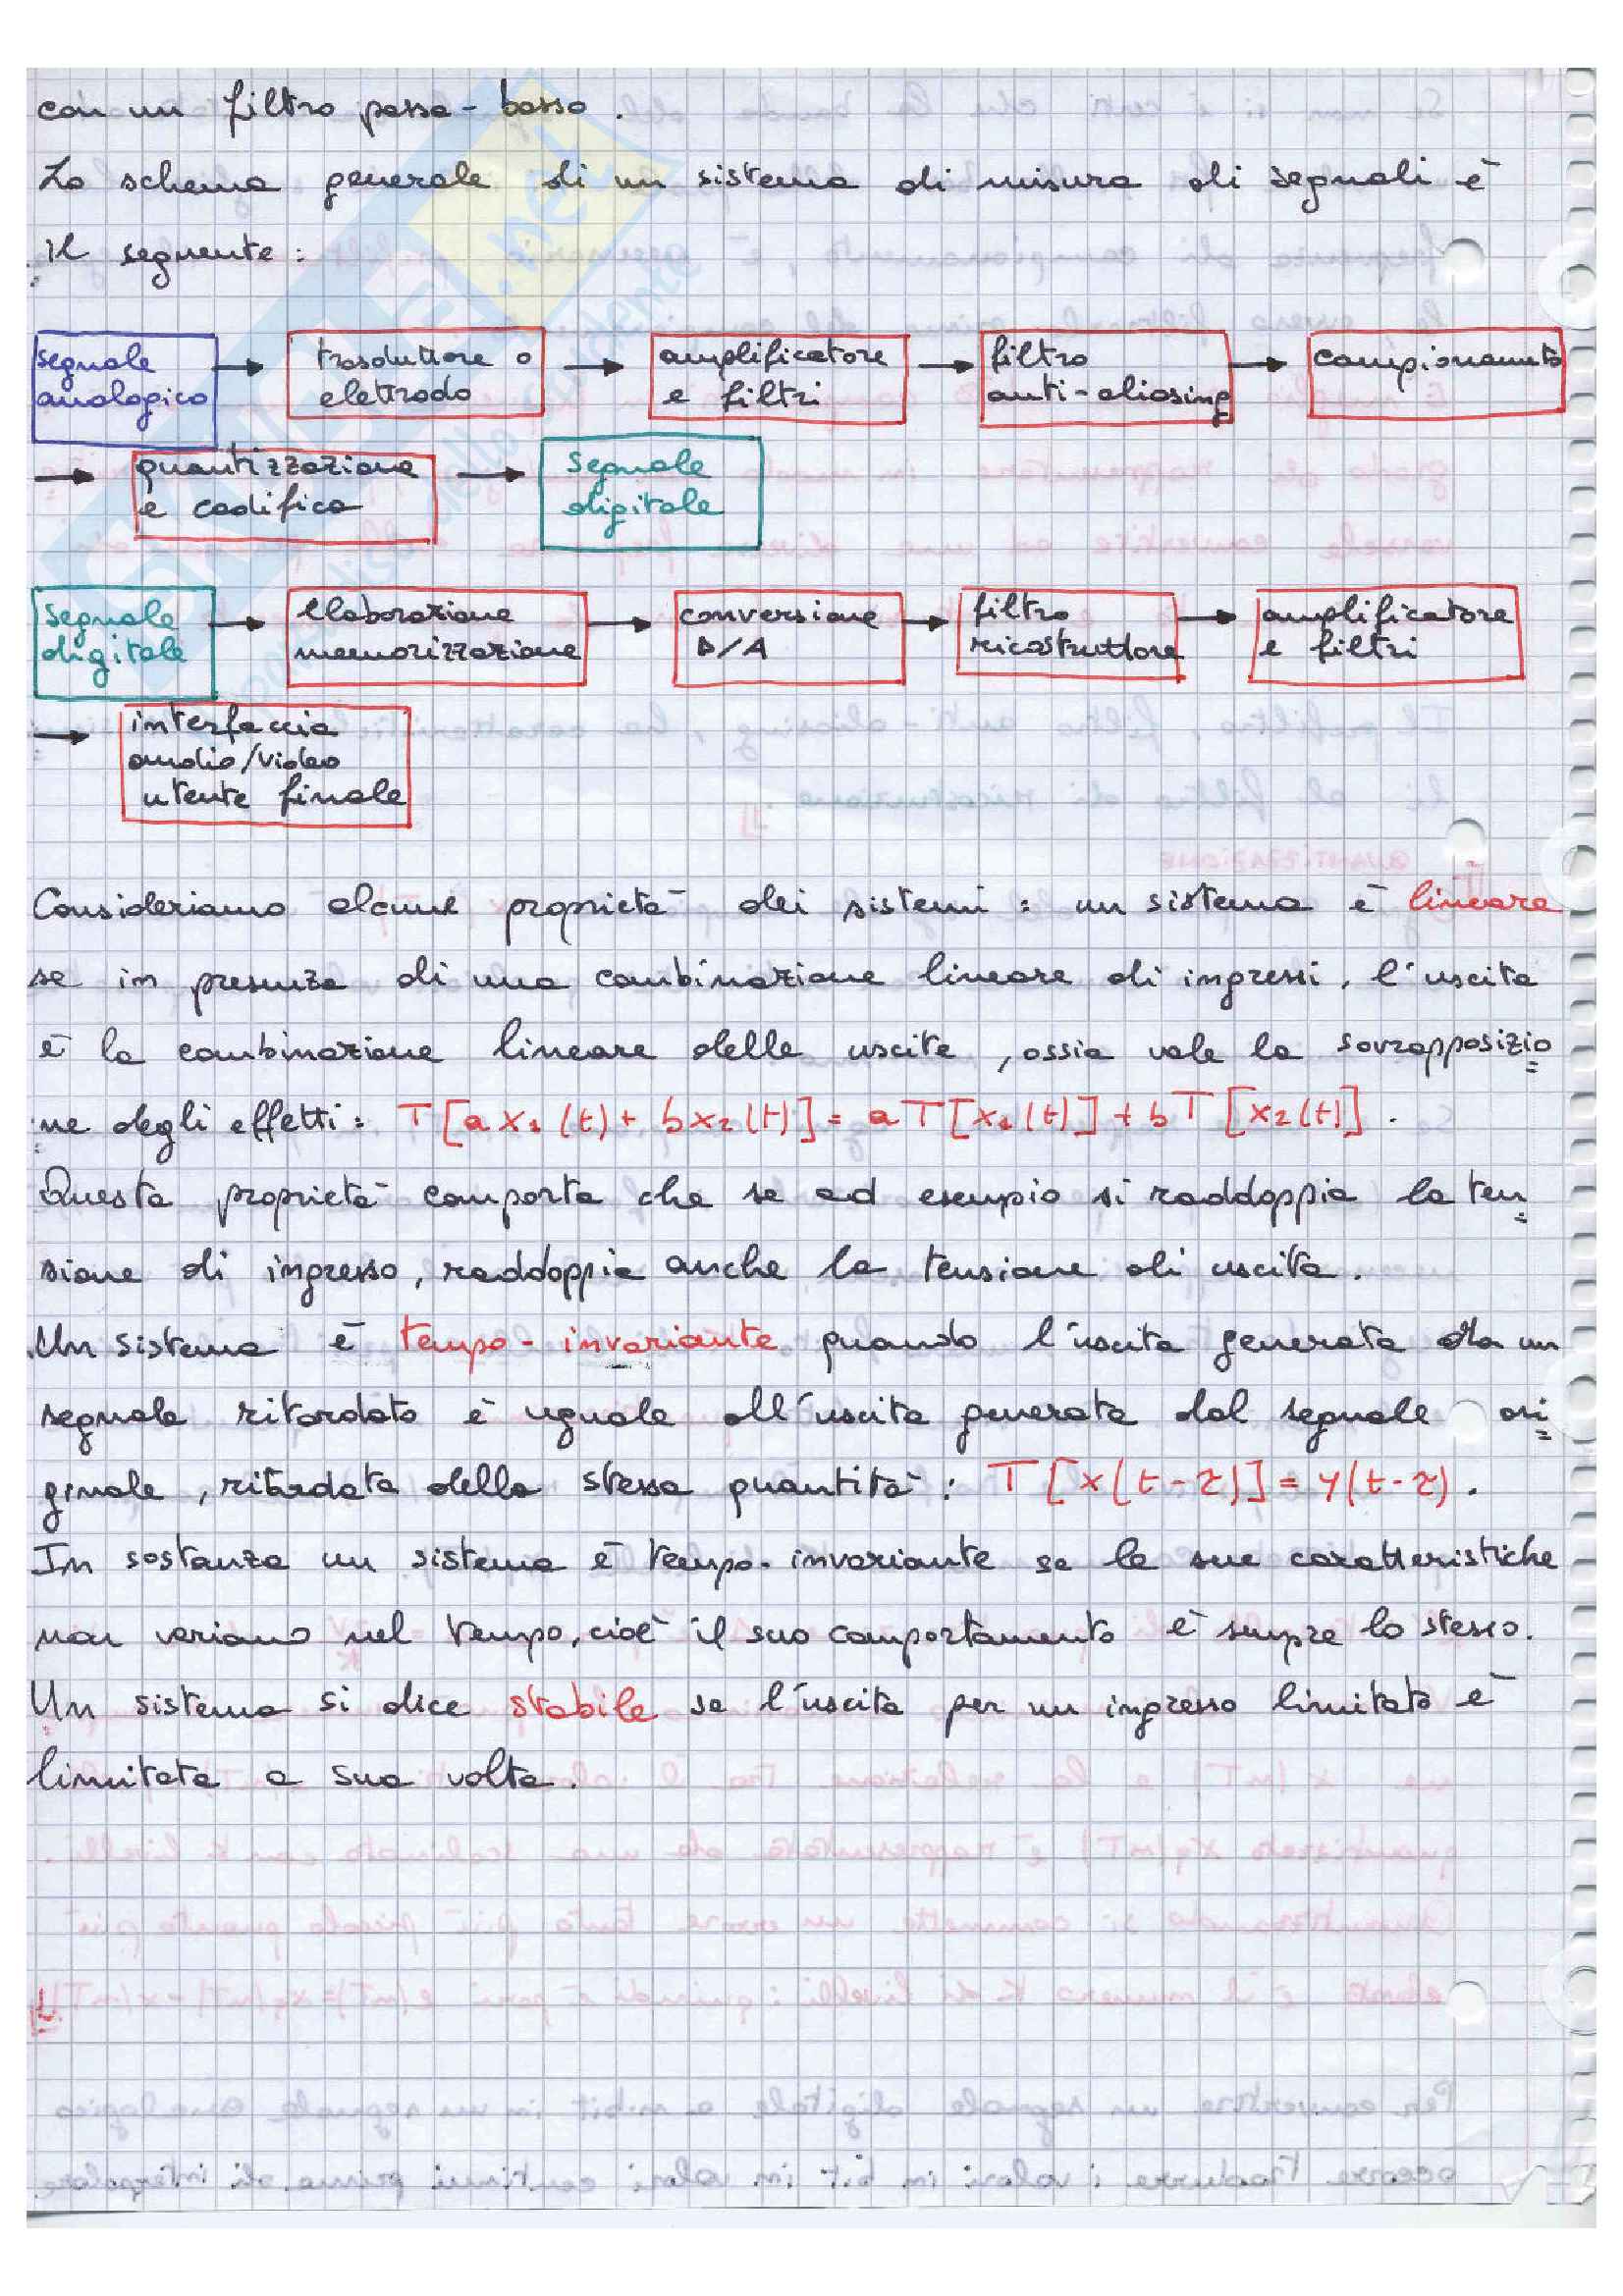 con un filtro passa-basso.
Lo schema generale di un sistema di misura di segnali è
il seguente:
segnale analogico → trasduttore o elettrodo → amplificatore e filtri → filtro anti-aliasing → campionamento
→ quantizzazione e codifica → segnale digitale
segnale digitale → elaborazione memorizzazione → conversione D/A → filtro ricostruttore → amplificatore e filtri
→ interfaccia audio/video utente finale
Consideriamo alcune proprietà dei sistemi: un sistema è lineare
se in presenza di una combinazione lineare di ingressi, l'uscita
è la combinazione lineare delle uscite, ossia vale la sovrapposizio
ne degli effetti: T[ax₁(t)+bx₂(t)]=aT[x₁(t)]+bT[x₂(t)].
Questa proprietà comporta che se ad esempio si raddoppia la ten
sione di ingresso, raddoppia anche la tensione di uscita.
Un sistema è tempo-invariante quando l'uscita generata da un
segnale ritardato è uguale all'uscita generata dal segnale ori
ginale, ritardata della stessa quantità: T[x(t-τ)]=y(t-τ).
In sostanza un sistema è tempo-invariante se le sue caratteristiche
non variano nel tempo, cioè il suo comportamento è sempre lo stesso.
Un sistema si dice stabile se l'uscita per un ingresso limitato è
limitata a sua volta.